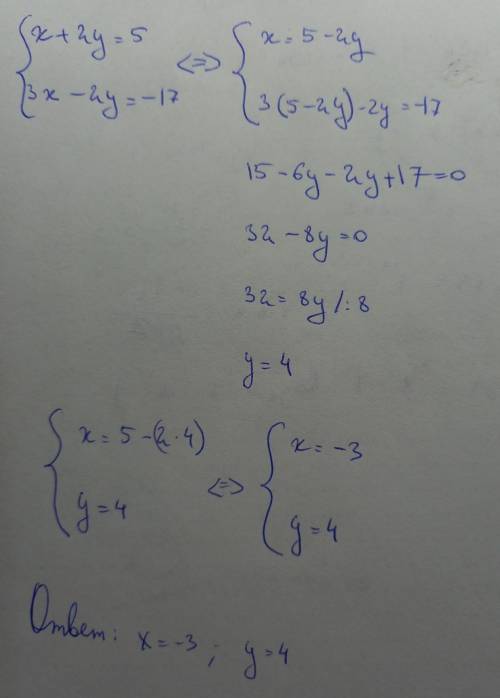 x + 2y = 5 <=> x = 5 - 2y
3x - 2y = -17 3(5 - 2y) - 2y = -17
15 - 6y - 2y + 17 = 0
32 - 8y = 0
32 = 8y /: 8
y = 4
x = 5 - (2 · 4) <=> x = -3
y = 4 y = 4
Ответ: x = -3 ; y = 4